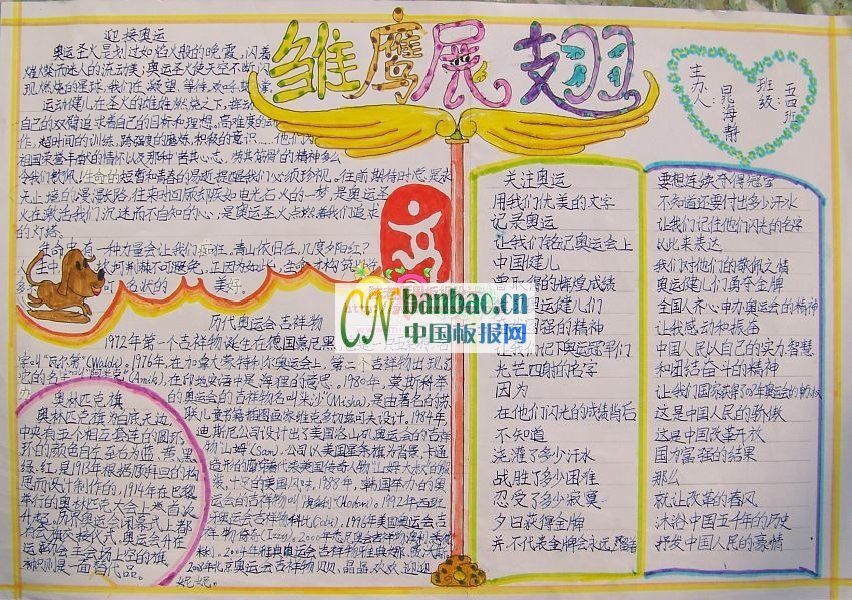 雏鹰展翅
主办人：晁海静
班级：五四班
迎接奥运
奥运圣火是划过如焰火般的晚霞，闪着
燃烧而迷人的流动美；奥运圣火使天空不断闪
现燃烧的星球，我们在凝望，等待，欢呼
运动健儿在圣火的雄雄燃烧之下，挥动
自己的双臂追求着自己的目标和理想。高难度的动
作，超时间的训练，跨强度的磨炼，积极的意识……他们为
祖国荣誉
的情怀以及那种"苦其心志，劳其筋骨"的精神多么
令我们敬佩！生命的短暂和青春的易逝提醒我们必须珍视
无止境的漫漫长路，往来时回顾却疾如电光石火的一梦，是奥运圣
火在激活我们沉迷而不自知的心；是奥运圣火燃烧着我们追求
的灯塔。
生命中有一种力量会让我们
青山依旧在，几度夕阳红？
历代奥运会吉祥物
1972年第一个吉祥物诞生在德国慕尼黑
字叫"瓦尔第"(Waldi)。1976年，在加拿大蒙特利尔奥运会上，第二个吉祥物出现了
它的名字
(Amik)，在印地安语中是海狸的意思。1980年，莫斯科举
办的奥运会的吉祥物名叫米沙"(Misha)，是由著名的苏
联儿童书籍插图画家维克多切兹可夫设计。1984年
迪斯尼公司设计出了美国洛山矶奥运会的吉祥
物山姆"(Sam)，公司以美国星条旗为背景，卡通
造形的鹰穿着代表美国传奇人物山姆大叔的服
装，十足的美国风味。1988年，韩国举办的奥
运会的吉祥物叫
(Chodori)。1992年西班
牙奥运会吉祥物科比(Cobi)。1996年美国奥运会吉
祥物伊奇(Izzy)。2000年悉尼奥运会吉祥物
2004年雅典奥运会吉祥物雅典娜、费沃斯
2008年北京奥运会吉祥物贝贝、晶晶、欢欢、迎迎
妮妮。
奥林匹克旗
奥林匹克旗为白底无边，
中央有五个相互套连的圆环，
环的颜色自左至右为蓝、黄、黑、
绿、红，是1913年根据顾拜旦的构
思而设计制作的，1914年在巴黎
举行的奥林匹克大会上首次
升起。历界奥运会闭幕式上都
有会旗交接仪式，奥运会开在
运动会主会场上空的旗
帜则是一面替代品。
关注奥运
用我们优美的文字
记录奥运
让我们铭记奥运会上
中国健儿
曾取得的辉煌成绩
奥运健儿们
顽强的精神
让我们记下奥运冠军们
光芒四射的名字
因为
在他们闪光的成绩背后
不知道
浇灌了多少汗水
战胜了多少困难
忍受了多少寂寞
夕日获得金牌
并不代表金牌会永远
要想连续夺得冠军
不知道还要付出多少汗水
让我们记住他们闪光的名字
以此来表达
我们对他们的敬佩之情
奥运健儿们勇夺金牌
全国人齐心申办奥运会的精神
让我感动和振奋
中国人民以自己的实力智慧
和团结奋斗的精神
让我们国家获得了08年奥运会的举办权
这是中国人民的骄傲
这是中国改革开放
国力富强的结果
那么
就让改革的春风
沐浴中国五千年的历史
抒发中国人民的豪情
CN banbao.cn
中国板报网